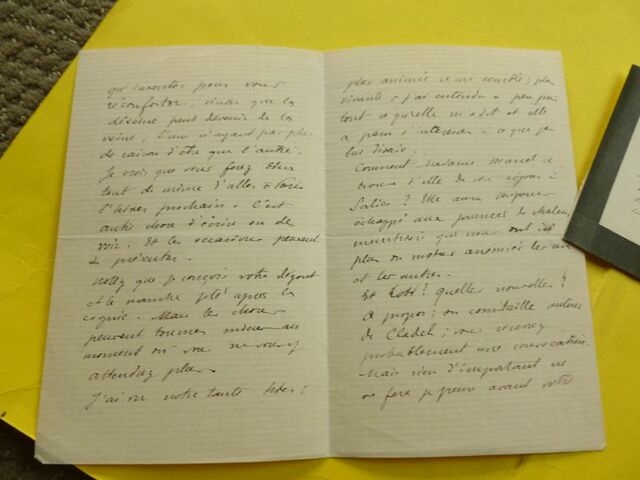 qu'inventer pour vous
réconforter, sinon que la
déveine peut devenir de la
veine; l'une n'ayant pas plus
de raison d'être que l'autre.
Je crois que vous ferez bien
tout de même d'aller à Paris
l'hiver prochain. C'est
autre chose d'écrire ou de
voir. Et les occasions peuvent
se présenter.
Notez que je conçois votre dégoût
et le manche jeté après la
cognée. Mais les choses
peuvent tourner même au
moment où on ne s'y
attendrez plus
J'ai vu notre tante
plus animée ce me semble; plus
vivante. J'ai entendu à peu près
tout ce qu'elle m'a dit et elle
a paru s'intéresser à ce que je
lui disais.
Comment Madame Manet se
trouve d'elle de son séjour à
Salies? Elle aura toujours
échappé aux journées de chaleur
qui nous ont ici
plus ou moins anémiés les uns
et les autres.
Et quelles nouvelles?
A propos; on comitaille autour
de Cladel; vous recevrez
probablement une convocation.
Mais rien d'important ne
se fera je pense avant votre